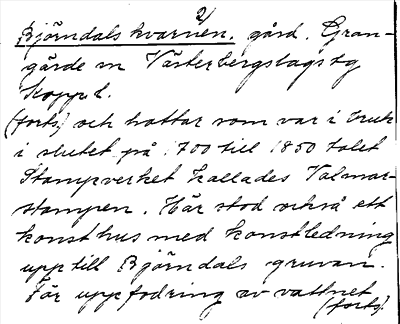 2)
Björndals kvarnen. gård. Gran-
gärde sn Västerbergslags tg
Kopp. l.
(forts) och hattar som var i bruk
i slutet på 1700 till 1850 talet
Stampverket kallades Valmar-
stampen. Här stod också ett
konsthus med konstledning
upp till Björndals gruvan.
För uppfodring av vattnet
(forts).